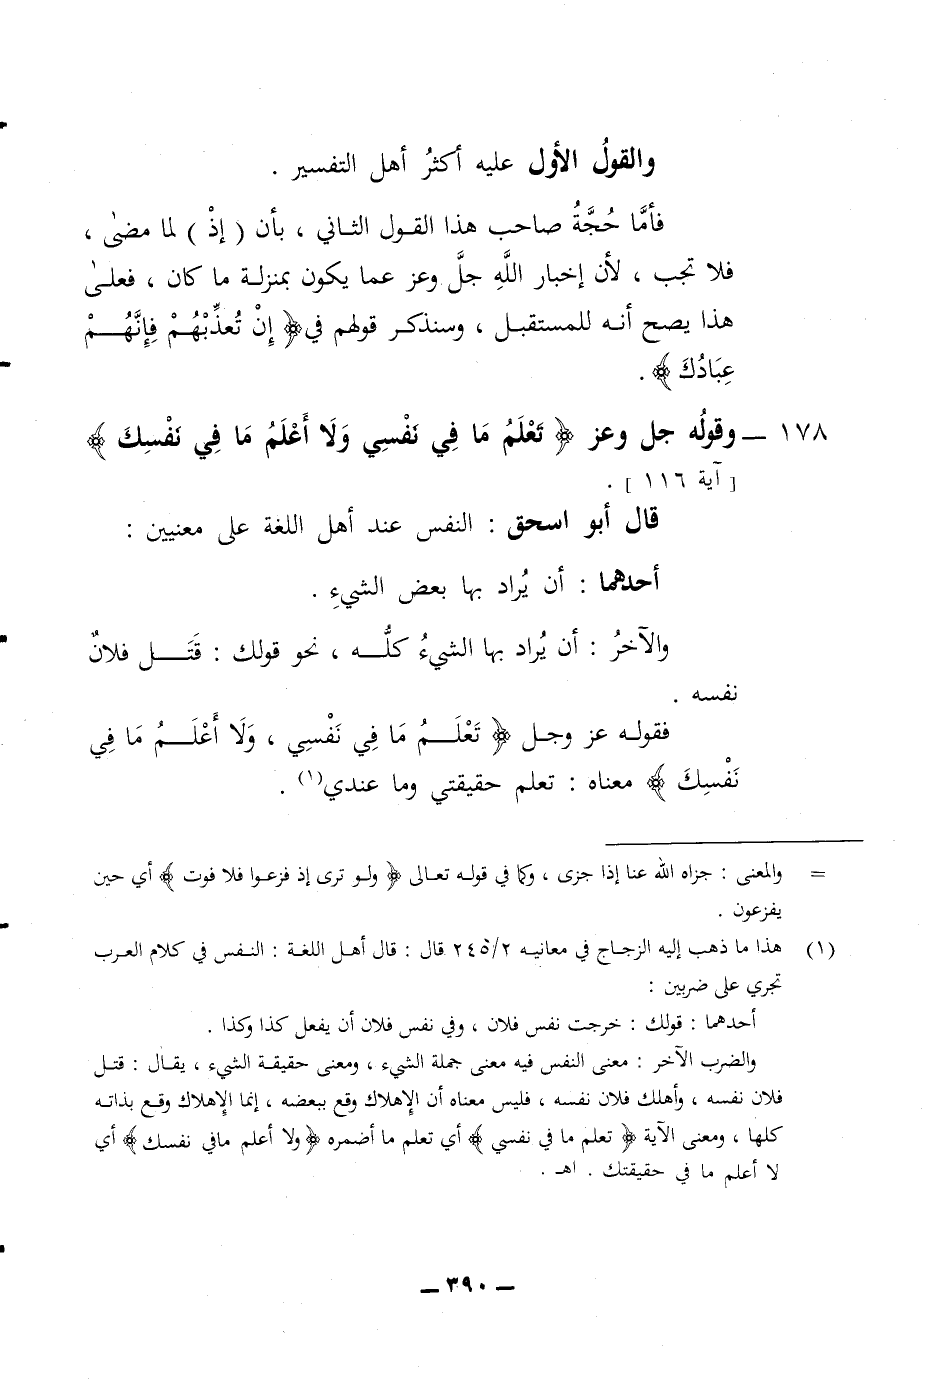 والقولُ الأول عليه أكثرُ أهل التفسير .
فأمَّا حُجَّةُ صاحب هذا القول الثاني ، بأن ( إذْ ) لما مضىٰ ،
فلا تجب ، لأن إخبار اللَّهِ جلَّ وعز عما يكون بمنزلة ما كان ، فعلىٰ
هذا يصح أنه للمستقبل ، وسنذكر قولهم في ﴿ إِنْ تُعذِّبْهُمْ فِإِنَّهُمْ
عِبَادُكَ ﴾ .
١٧٨ ــ وقولُه جل وعز ﴿ تَعْلَمُ مَا فِي نَفْسِي وَلَا أَعْلَمُ مَا فِي نَفْسِكَ ﴾
[ آية ١١٦ ] .
قال أبو اسحق : النفس عند أهل اللغة على معنيين :
أحدهما : أن يُراد بها بعض الشيءِ .
والآخرُ : أن يُراد بها الشيءُ كلُّه ، نحو قولك : قَتَل فلانٌ
نفسه .
فقوله عز وجل ﴿ تَعْلَمُ مَا فِي نَفْسِي ، وَلَا أَعْلَمُ مَا فِي
نَفْسِكَ ﴾ معناه : تعلم حقيقتي وما عندي(١) .
= والمعنى : جزاه الله عنا إذا جزى ، وكما في قوله تعالى ﴿ ولو ترى إذ فزعوا فلا فوت ﴾ أي حين
يفزعون .
(١) هذا ما ذهب إليه الزجاج في معانيه ٢٤٥/٢ قال : قال أهل اللغة : النفس في كلام العرب
تجري على ضربين :
أحدهما : قولك : خرجت نفس فلان ، وفي نفس فلان أن يفعل كذا وكذا .
والضرب الآخر : معنى النفس فيه معنى جملة الشيء ، ومعنى حقيقة الشيء ، يقال : قتل
فلان نفسه ، وأهلك فلان نفسه ، فليس معناه أن الإهلاك وقع ببعضه ، إنما الإهلاك وقع بذاته
كلها ، ومعنى الآية ﴿ تعلم ما في نفسي ﴾ أي تعلم ما أضمره ﴿ولا أعلم مافي نفسك﴾ أي
لا أعلم ما في حقيقتك . اهـ .
ــ ٣٩٠ ــ